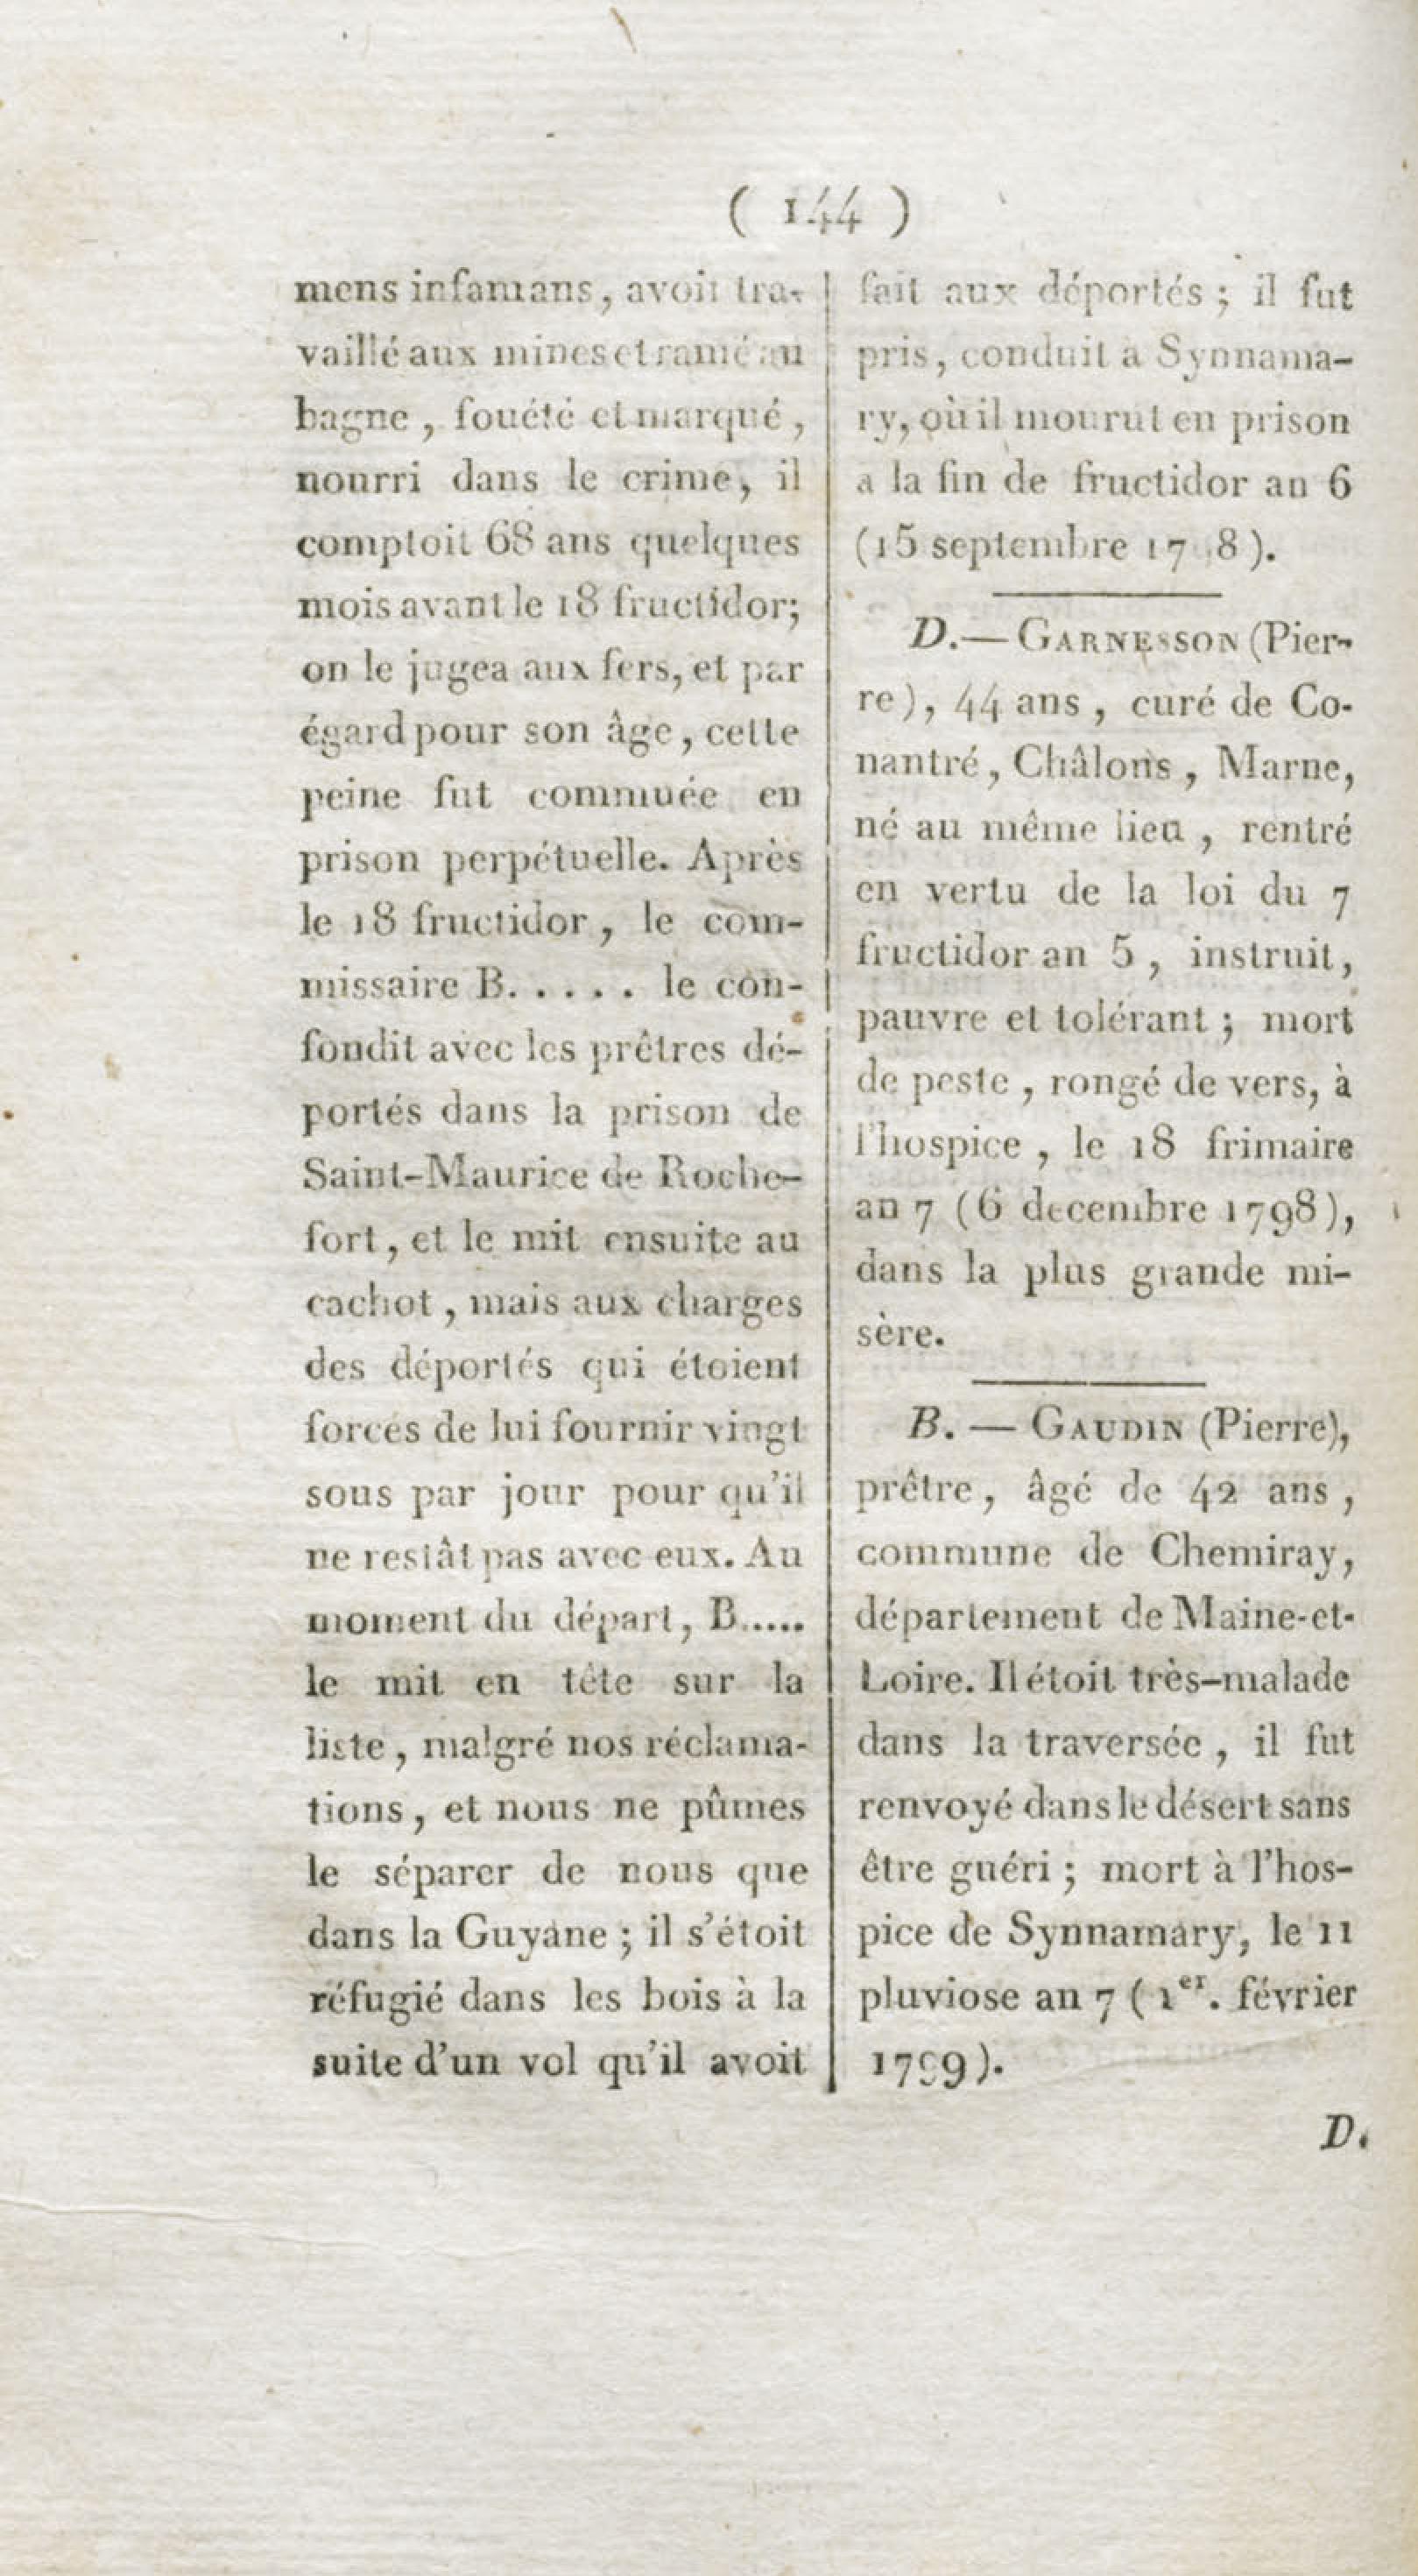 ( 144 )
mens infamans, avoit tra-
vaillé aux mines et ramé au
bagne , fouété et marqué ,
nourri dans le crime, il
comptoit 68 ans quelques
mois avant le 18 fructidor;
on le jugea aux fers, et par
égard pour son âge, cette
peine fut commuée en
prison perpétuelle. Après
le 18 fructidor, le com-
missaire B. . . . . le con-
fondit avec les prêtres dé-
portés dans la prison de
Saint-Maurice de Roche-
fort, et le mit ensuite au
cachot, mais aux charges
des déportés qui étoient
forcés de lui fournir vingt
sous par jour pour qu'il
ne restât pas avec eux. Au
moment du départ, B.....
le mit en tête sur la
liste, malgré nos réclama-
tions, et nous ne pûmes
le séparer de nous que
dans la Guyane ; il s'étoit
réfugié dans les bois à la
suite d'un vol qu'il avoit
fait aux déportés ; il fut
pris, conduit a Synnama-
ry, où il mourut en prison
a la fin de fructidor an 6
(15 septembre 17 8).
D.— GARNESSON (Pier-
re), 44 ans , curé de Co-
nantré, Châlons , Marne,
né au même lieu , rentré
en vertu de la loi du 7
fructidor an 5 , instruit,
pauvre et tolérant ; mort
de peste , rongé de vers, à
l'hospice , le 18 frimaire
an 7 (6 decembre 1798),
dans la plus grande mi-
sère.
B. — GAUDIN (Pierre),
prêtre, âgé de 42 ans ,
commune de Chemiray,
département de Maine-et-
Loire. Il étoit très-malade
dans la traversée , il fut
renvoyé dans le désert sans
être guéri ; mort à l'hos-
pice de Synnamary, le 11
pluviose an 7 ( 1er. février
1799).
D.